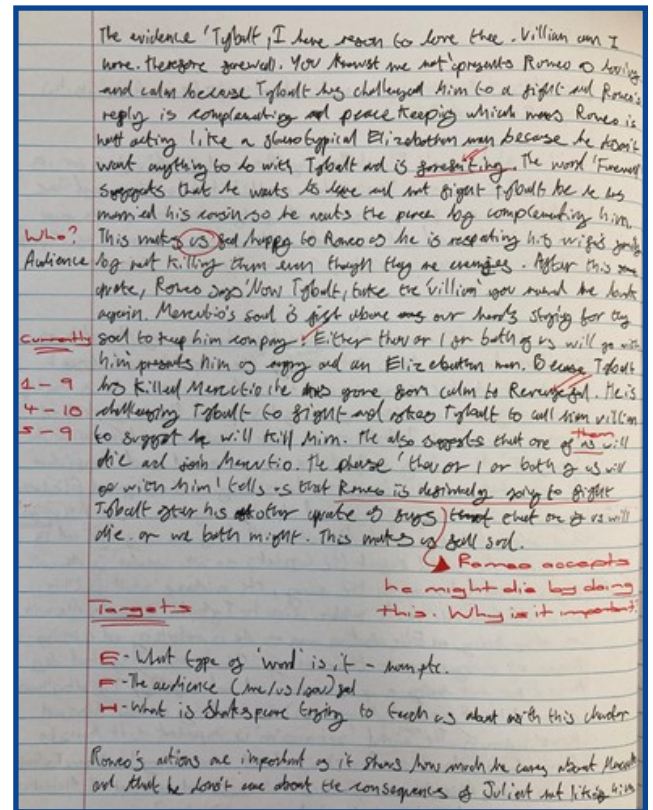 The evidence 'Tybalt, I have reason to love thee. Villian am I
none. therefore farewell. You knowst me not' presents Romeo as loving
and calm because Tybalt has challenged him to a fight and Romeo's
reply is complementing and peace keeping which means Romeo is
not acting like a stereotypical Elizabethan man because he doesn't
want anything to do with Tybalt and is . The word 'Farewell
suggests that he wants to leave and not fight Tybalt he has
married his cousin so he wants the peace by complementing him.
Who? This makes us feel happy to Romeo as he is respecting his wife's family
Audience by not killing them even though they are enemies. After this
quote, Romeo says 'Now Tybalt, take the 'villian' you the back
again. Mercutio's soul is just above our heads staying for thy
Currently soul to keep him company. Either thou or I or both of us will go with
him' presents him as angry and an Elizebathan man. Because Tybalt
1 - 9 has killed Mercutio he gone from calm to Revengeful. He is
4 - 10 challenging Tybalt to fight and Tybalt to call him villian
5 - 9 to suggest he will kill him. He also suggests that one of us them will
die and join Mercutio. The phrase 'thou or I or both of us will
go with him' tells us that Romeo is going to fight
Tybalt after his other quote says that one of us will
die. or we both might. This makes us feel sad.
Romeo accepts
he might die by doing
this. Why is it important?
Targets
E - What type of 'word' is it - noun etc.
F - The audience (me/us/you) feel
H - What is Shakespeare trying to teach us about with this character
Romeo's actions are important as it shows how much he cares about
and that he doesn't care about the consequences of Juliet not liking him